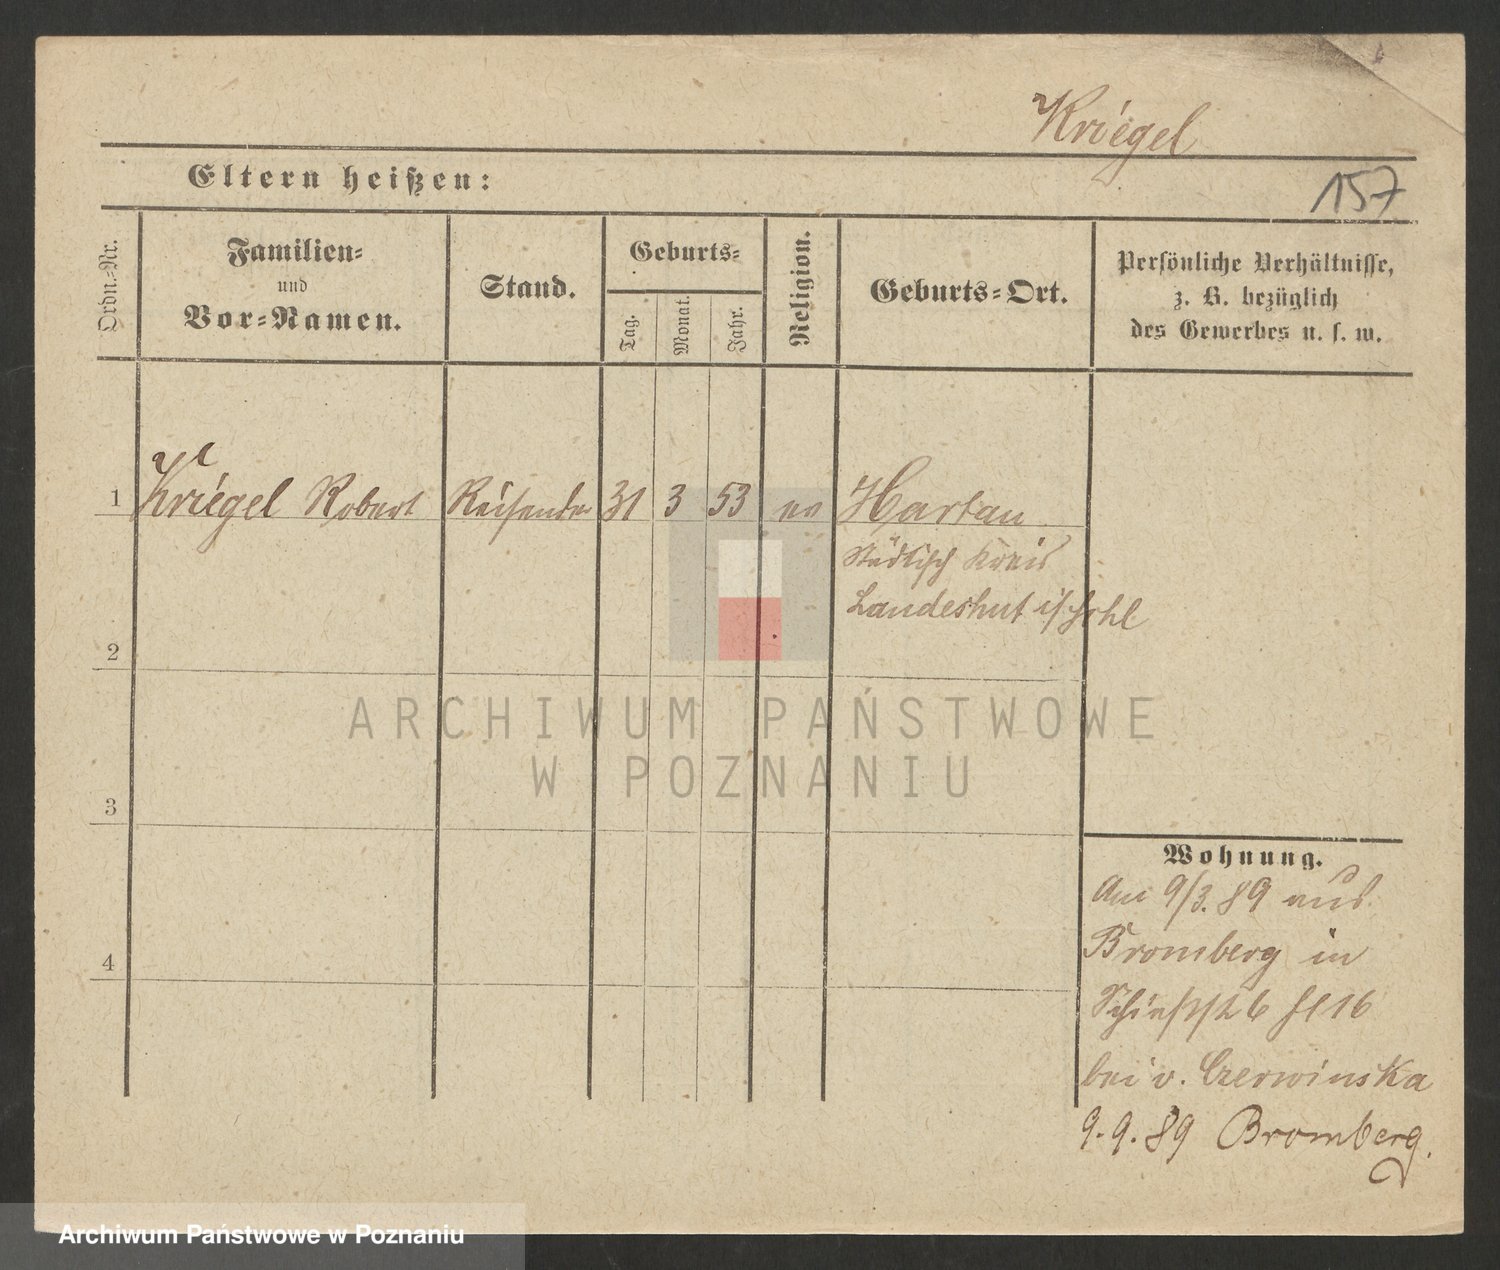 Kriegel
157
Eltern heißen:
Ordn.-Nr.
Familien-
und
Vor-Namen.
Stand.
Geburts-
Tag.
Monat.
Jahr.
Religion.
Geburts-Ort.
Persönliche Verhältnisse,
z. B. bezüglich
des Gewerbes u. s. w.
1 Kriegel Robert Reisender 31 3 53 ev Hartau
Städtisch Kreis
Landeshut i/Schl
2
3
4
ARCHIWUM PAŃSTWOWE
W POZNANIU
Wohnung.
Am 9/3. 89 aus
Bromberg in
6 16
bei v. Czerwinska
9.9.89 Bromberg.
Archiwum Państwowe w Poznaniu